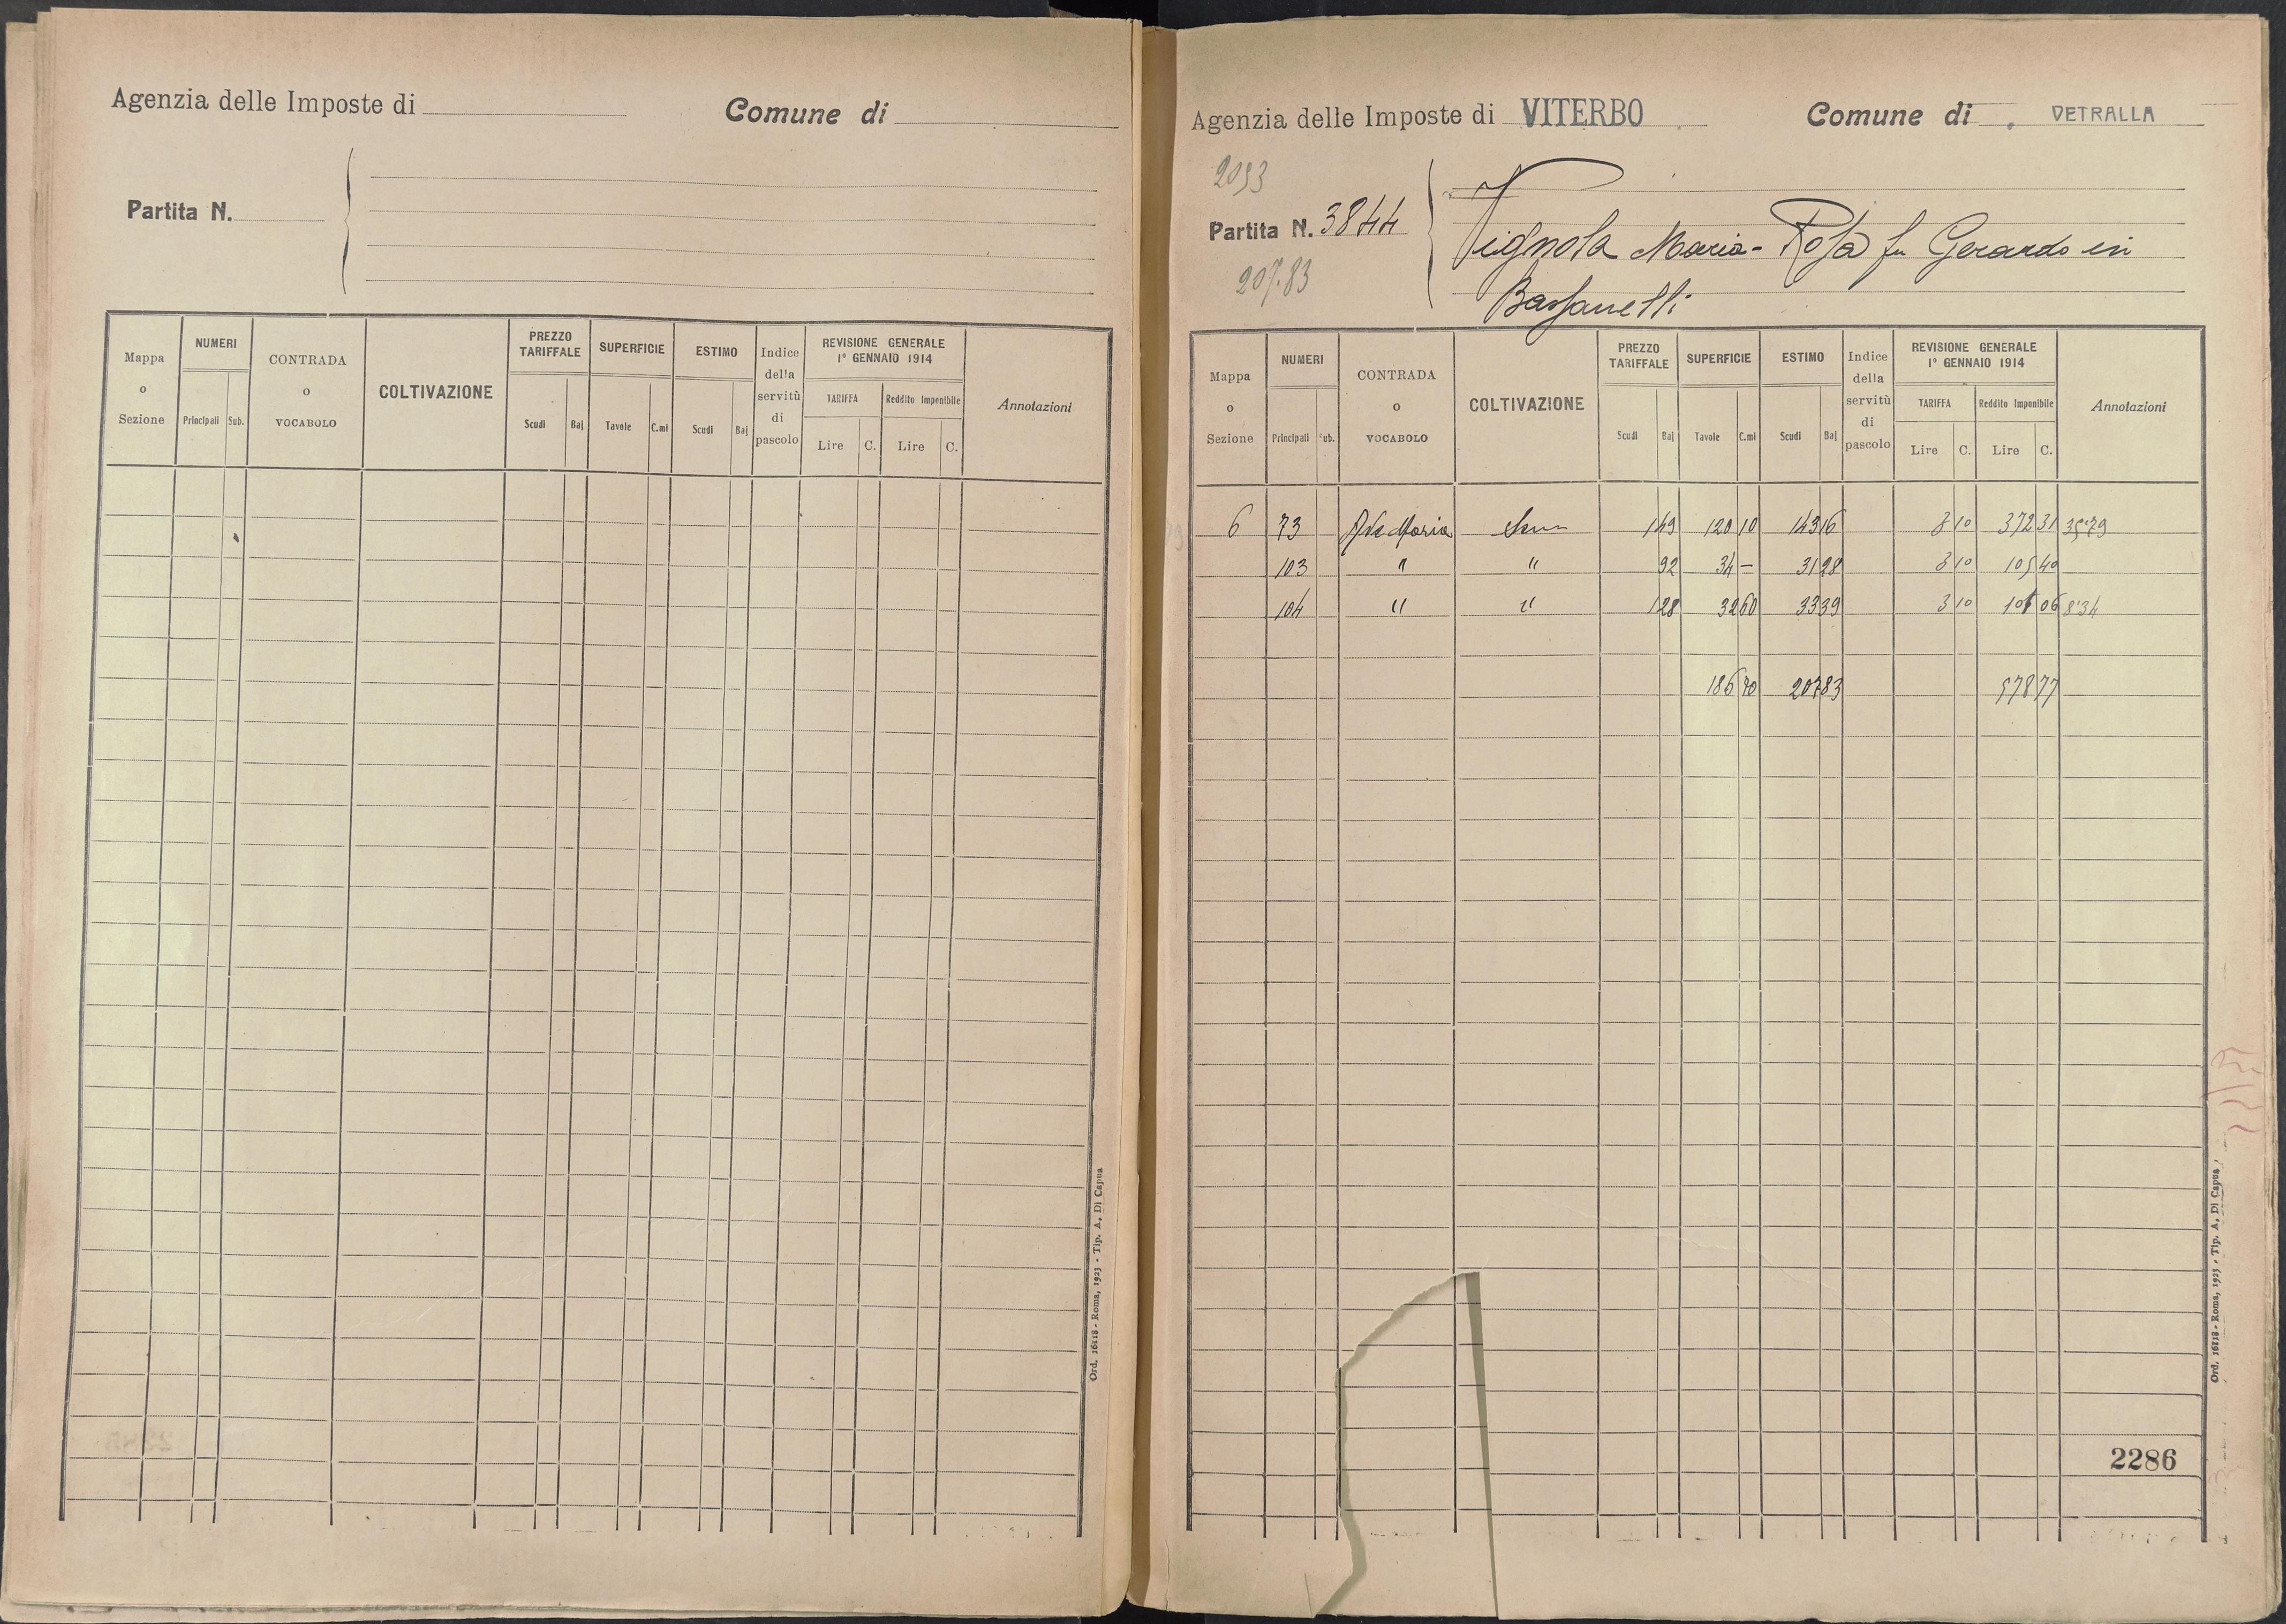 Agenzia delle Imposte di
Comune di
Partita N.
Mappa o Sezione
NUMERI
Principali
Sub.
CONTRADA o VOCABOLO
COLTIVAZIONE
PREZZO TARIFFALE
Scudi
Baj
SUPERFICIE
Tavole
C.mi
ESTIMO
Scudi
Baj
Indice della servitù di pascolo
REVISIONE GENERALE
1° GENNAIO 1914
TARIFFA
Reddito Imponibile
Lire
C.
Lire
C.
Annotazioni
Ord. 16118 - Roma, 1923 - Tip. A. Di Capua
Agenzia delle Imposte di VITERBO
Comune di VETRALLA
2093
Partita N. 3844
207.83
Vignola Maria-Rosa fu Gerardo in
Bassanelli
Mappa o Sezione
NUMERI
Principali
ub.
CONTRADA o VOCABOLO
COLTIVAZIONE
PREZZO TARIFFALE
Scudi
Baj
SUPERFICIE
Tavole
C.mi
ESTIMO
Scudi
Baj
Indice della servitù di pascolo
REVISIONE GENERALE
1° GENNAIO 1914
TARIFFA
Reddito Imponibile
Lire
C.
Lire
C.
Annotazioni
6 73 Ave Maria 1 49 120 10 143 16 3 10 372 31 35.79
103 " " 92 34 — 31 28 3 10 105 40
104 " " 1 28 32 60 33 39 3 10 101 06 8.34
186 70 207 83 578 77
2286
Ord. 16118 - Roma, 1923 - Tip. A. Di Capua